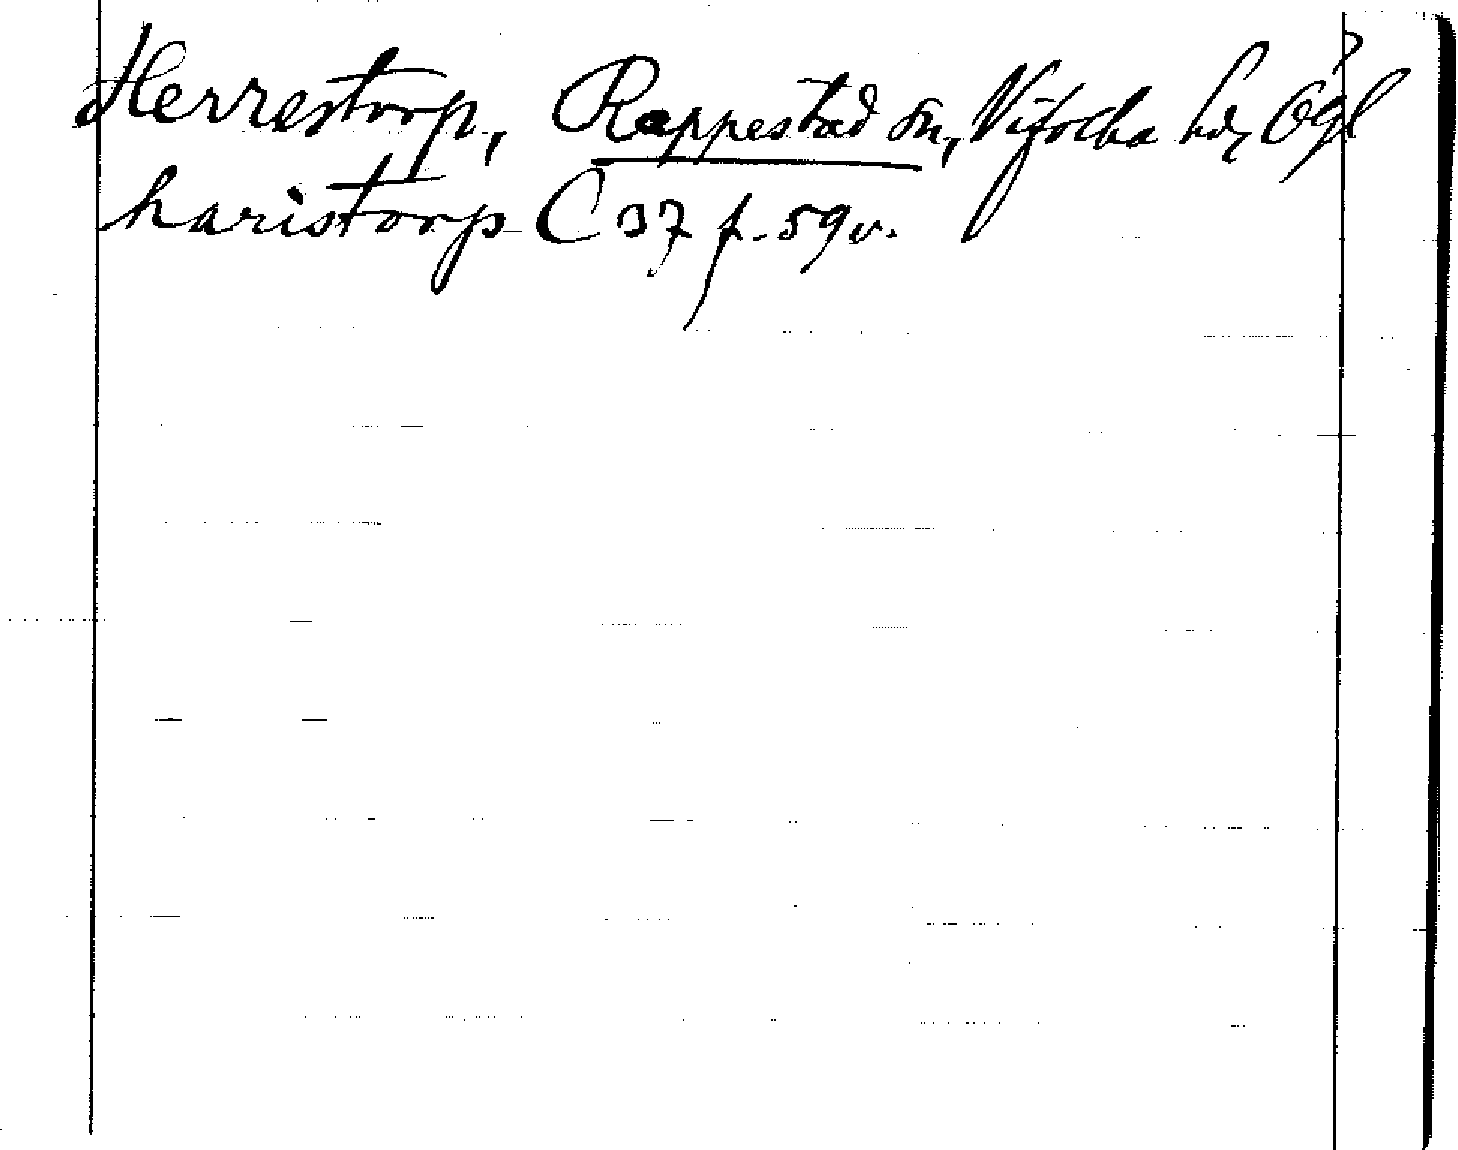 Herrestorp, Rappestad sn, Vifolka hd, Ögl ?
haristorp C 37 f. 59v.